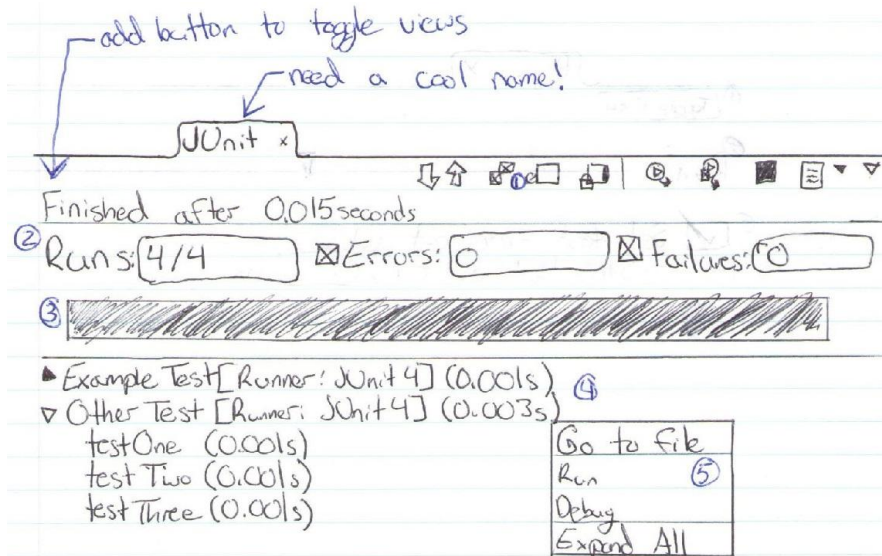 add button to toggle views
need a cool name!
JUnit x
①
Finished after 0.015 seconds
② Runs: 4/4 Errors: 0 Failures: 0
③
Example Test [Runner: JUnit 4] (0.001s) ④
Other Test [Runner: JUnit 4] (0.003s)
testOne (0.001s)
test Two (0.001s)
test Three (0.001s)
Go to file
Run ⑤
Debug
Expand All